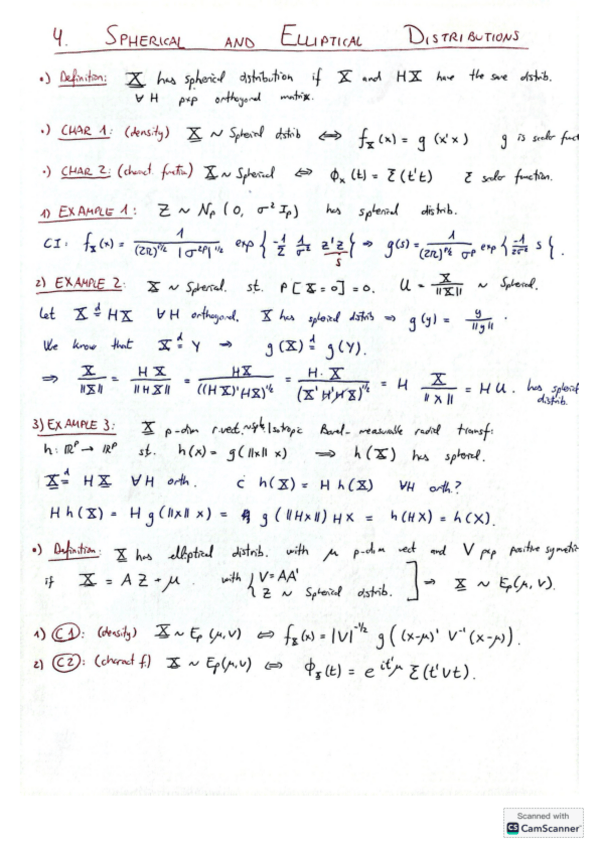 4. SPHERICAL AND ELLIPTICAL DISTRIBUTIONS
•) Definition: X has spherical distribution if X and HX have the same distrib.
∀ H pxp orthogonal matrix.
•) CHAR 1: (density) X ~ Spherical distrib ⟺ f_X(x) = g(x'x) g is scalar funct
•) CHAR 2: (charact. function) X ~ Spherical ⟺ ϕ_x(t) = ξ(t't) ξ scalar function.
1) EXAMPLE 1: Z ~ N_p(0, σ² I_p) has spherical distrib.
C1: f_X(x) = 1/((2π)^{p/2} |σ^{2p}|^{1/2}) exp{-1/2 1/σ² z'z} ⇒ g(s) = 1/((2π)^{p/2} σ^p) exp{-1/2σ² s}.
s
2) EXAMPLE 2: X ~ Spherical. st. P[X=0]=0. U = X/||X|| ~ Spherical.
Let X =^d HX ∀H orthogonal. X has spherical distrib ⇒ g(y) = y/||y||.
We know that X =^d Y ⇒ g(X) =^d g(Y).
⇒ X/||X|| = HX/||HX|| = HX/((HX)'HX)^{1/2} = H·X/(X'H'HX)^{1/2} = H X/||X|| = HU. has spherical
distrib.
3) EXAMPLE 3: X p-dim r.vect. Isotropic Borel-measurable radial transf:
h: ℝ^p → ℝ^p st. h(x) = g(||x|| x) ⟹ h(X) has spherical.
X =^d HX ∀H orth. ¿ h(X) = H h(X) ∀H orth.?
H h(X) = H g(||x|| x) = g(||Hx||) HX = h(HX) = h(X).
•) Definition: X has elliptical distrib. with μ p-dim vect and V pxp positive symetric
if X = AZ + μ. with { V=AA' Z ~ Spherical distrib. ] ⇒ X ~ E_p(μ, V).
1) C1: (density) X ~ E_p(μ,V) ⟺ f_X(x) = |V|^{-1/2} g((x-μ)' V^{-1} (x-μ)).
2) C2: (charact f.) X ~ E_p(μ,V) ⟺ ϕ_X(t) = e^{it'μ} ξ(t'Vt).
Scanned with
CS CamScanner